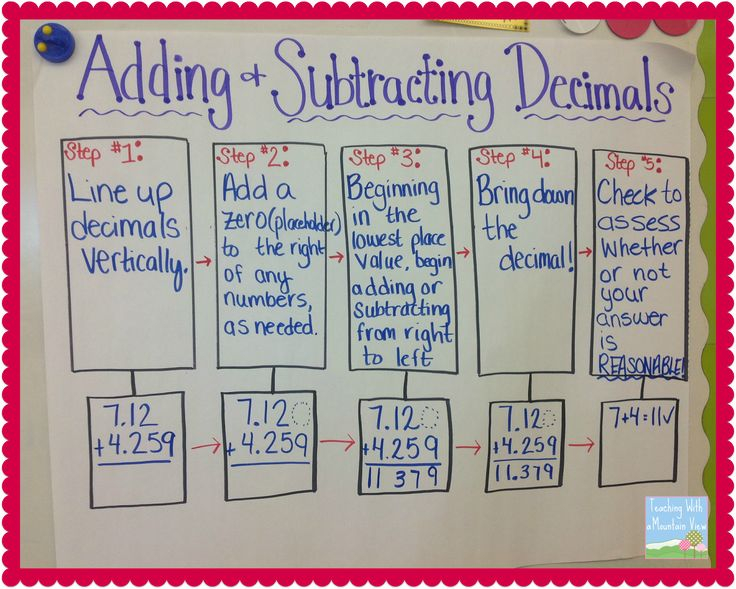 Adding & Subtracting Decimals
Step #1:
Line up
decimals
vertically.
Step #2:
Add a
zero (placeholder)
to the right
of any
numbers,
as needed.
Step #3:
Beginning
in the
lowest place
value, begin
adding or
subtracting
from right
to left
Step #4:
Bring down
the
decimal!
Step #5:
Check to
assess
whether
or not
your
answer
is
REASONABLE!
7.12
+4.259
7.120
+4.259
7.120
+4.259
11 379
7.120
+4.259
11.379
7+4=11✓
Teaching With
a Mountain View